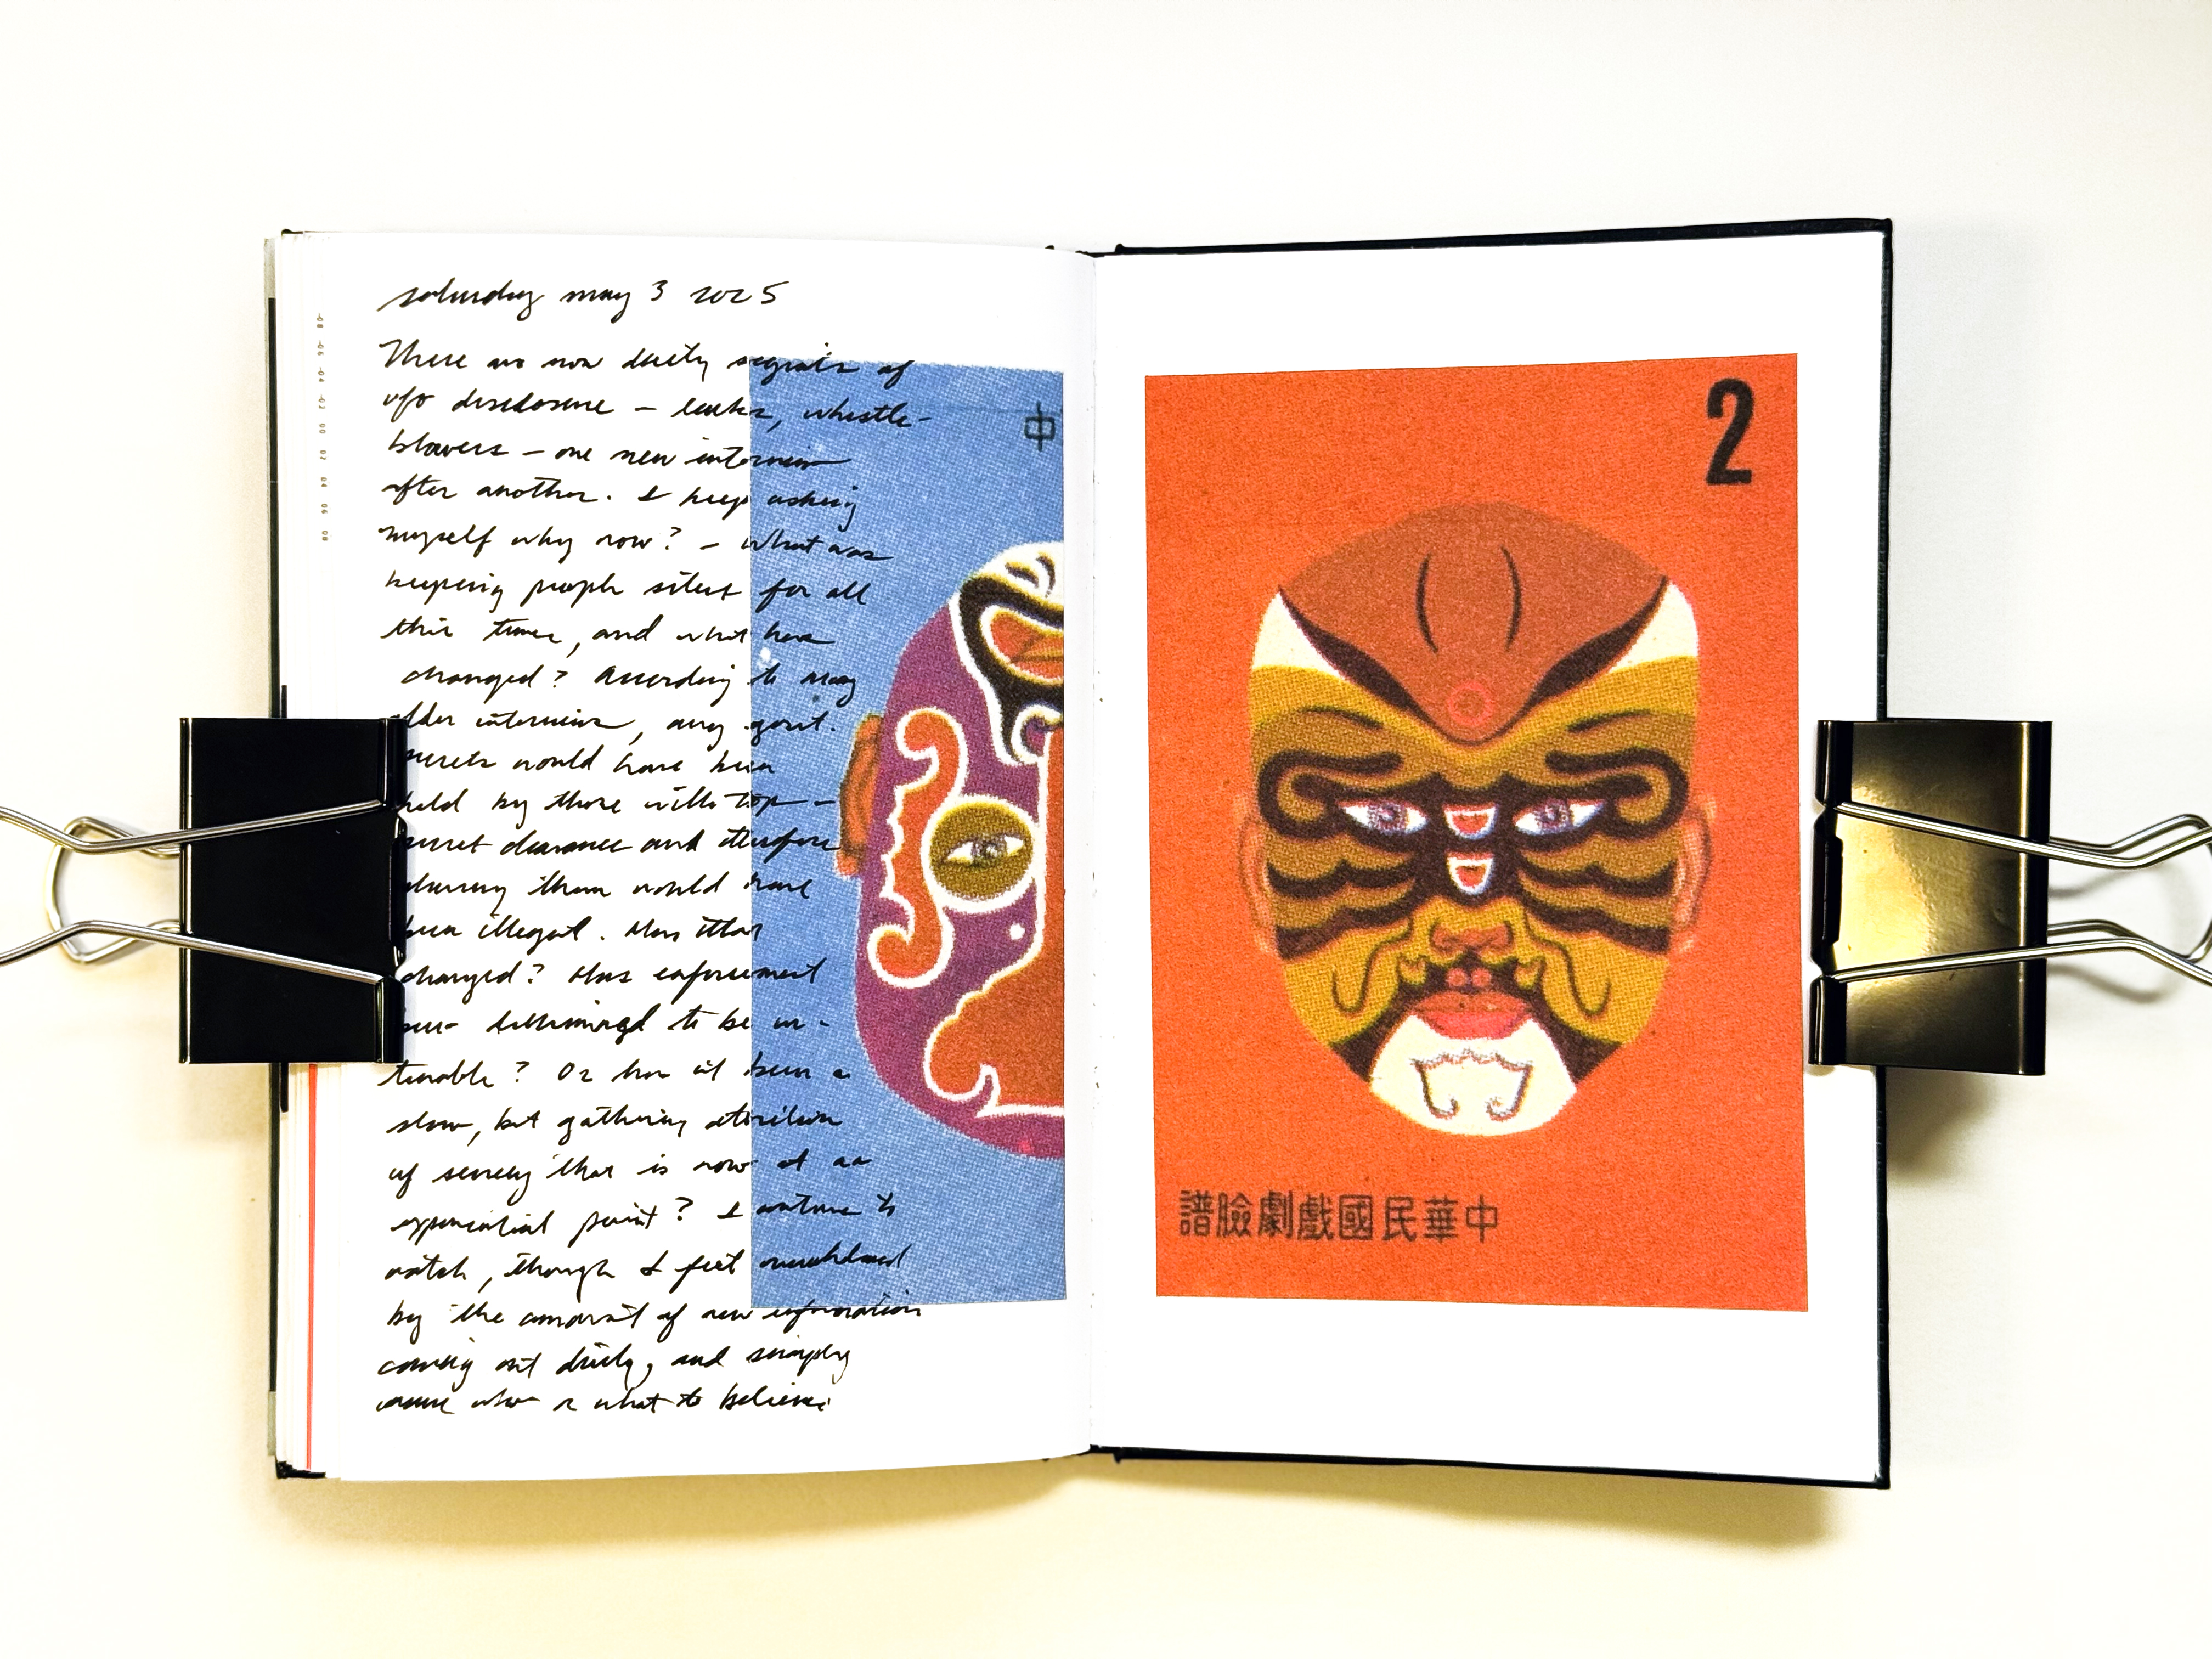 saturday may 3 2025
There are now daily segments of
ufo disclosure – leaks, whistle-
blowers – one new interview
after another. I keep asking
myself why now? – What was
keeping people silent for all
this time, and what has
changed? According to many
older interviews, any govt.
secrets would have been
held by those with top –
secret clearance and therefore
sharing them would have
been illegal. Has that
changed? Has enforcement
been determined to be un-
tenable? Or has it been a
slow, but gathering attrition
of secrecy that is now at an
exponential point? I continue to
watch, though I feel overwhelmed
by the amount of new information
coming out daily, and simply
unsure who or what to believe.
-08 -06 -04 -02 00 02 04 06 08
中
2
譜臉劇戲國民華中